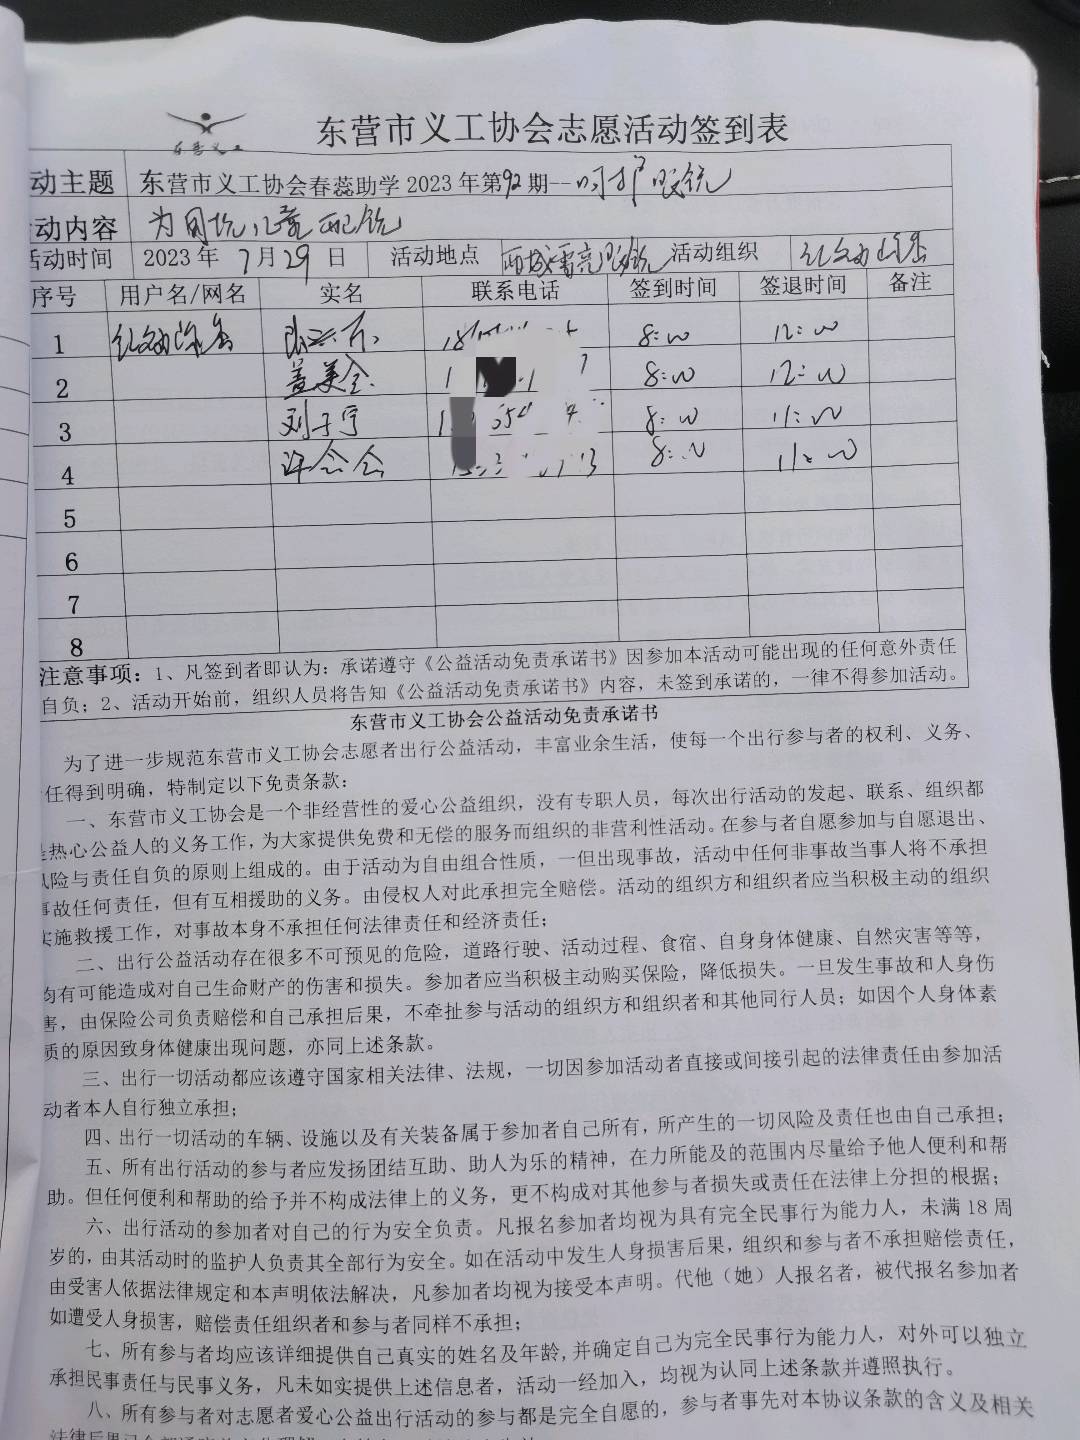 东营义工
东营市义工协会志愿活动签到表
动主题 东营市义工协会春蕊助学2023年第92期--呵护眼镜
动内容 为困境儿童配镜
活动时间 2023年7月29日 活动地点 西城雷亮眼镜 活动组织
序号 用户名/网名 实名 联系电话 签到时间 签退时间 备注
1 8:00 12:00
2 盖美全 8:00 12:00
3 刘子宁 8:00 11:00
4 许念念 8:00 11:00
5
6
7
8
注意事项：1、凡签到者即认为：承诺遵守《公益活动免责承诺书》因参加本活动可能出现的任何意外责任
自负；2、活动开始前，组织人员将告知《公益活动免责承诺书》内容，未签到承诺的，一律不得参加活动。
东营市义工协会公益活动免责承诺书
为了进一步规范东营市义工协会志愿者出行公益活动，丰富业余生活，使每一个出行参与者的权利、义务、
任得到明确，特制定以下免责条款：
一、东营市义工协会是一个非经营性的爱心公益组织，没有专职人员，每次出行活动的发起、联系、组织都
是热心公益人的义务工作，为大家提供免费和无偿的服务而组织的非营利性活动。在参与者自愿参加与自愿退出、
风险与责任自负的原则上组成的。由于活动为自由组合性质，一但出现事故，活动中任何非事故当事人将不承担
事故任何责任，但有互相援助的义务。由侵权人对此承担完全赔偿。活动的组织方和组织者应当积极主动的组织
实施救援工作，对事故本身不承担任何法律责任和经济责任；
二、出行公益活动存在很多不可预见的危险，道路行驶、活动过程、食宿、自身身体健康、自然灾害等等，
均有可能造成对自己生命财产的伤害和损失。参加者应当积极主动购买保险，降低损失。一旦发生事故和人身伤
害，由保险公司负责赔偿和自己承担后果，不牵扯参与活动的组织方和组织者和其他同行人员；如因个人身体素
质的原因致身体健康出现问题，亦同上述条款。
三、出行一切活动都应该遵守国家相关法律、法规，一切因参加活动者直接或间接引起的法律责任由参加活
动者本人自行独立承担；
四、出行一切活动的车辆、设施以及有关装备属于参加者自己所有，所产生的一切风险及责任也由自己承担；
五、所有出行活动的参与者应发扬团结互助、助人为乐的精神，在力所能及的范围内尽量给予他人便利和帮
助。但任何便利和帮助的给予并不构成法律上的义务，更不构成对其他参与者损失或责任在法律上分担的根据；
六、出行活动的参加者对自己的行为安全负责。凡报名参加者均视为具有完全民事行为能力人，未满18周
岁的，由其活动时的监护人负责其全部行为安全。如在活动中发生人身损害后果，组织和参与者不承担赔偿责任，
由受害人依据法律规定和本声明依法解决，凡参加者均视为接受本声明。代他（她）人报名者，被代报名参加者
如遭受人身损害，赔偿责任组织者和参与者同样不承担；
七、所有参与者均应该详细提供自己真实的姓名及年龄,并确定自己为完全民事行为能力人，对外可以独立
承担民事责任与民事义务，凡未如实提供上述信息者，活动一经加入，均视为认同上述条款并遵照执行。
八、所有参与者对志愿者爱心公益出行活动的参与都是完全自愿的，参与者事先对本协议条款的含义及相关